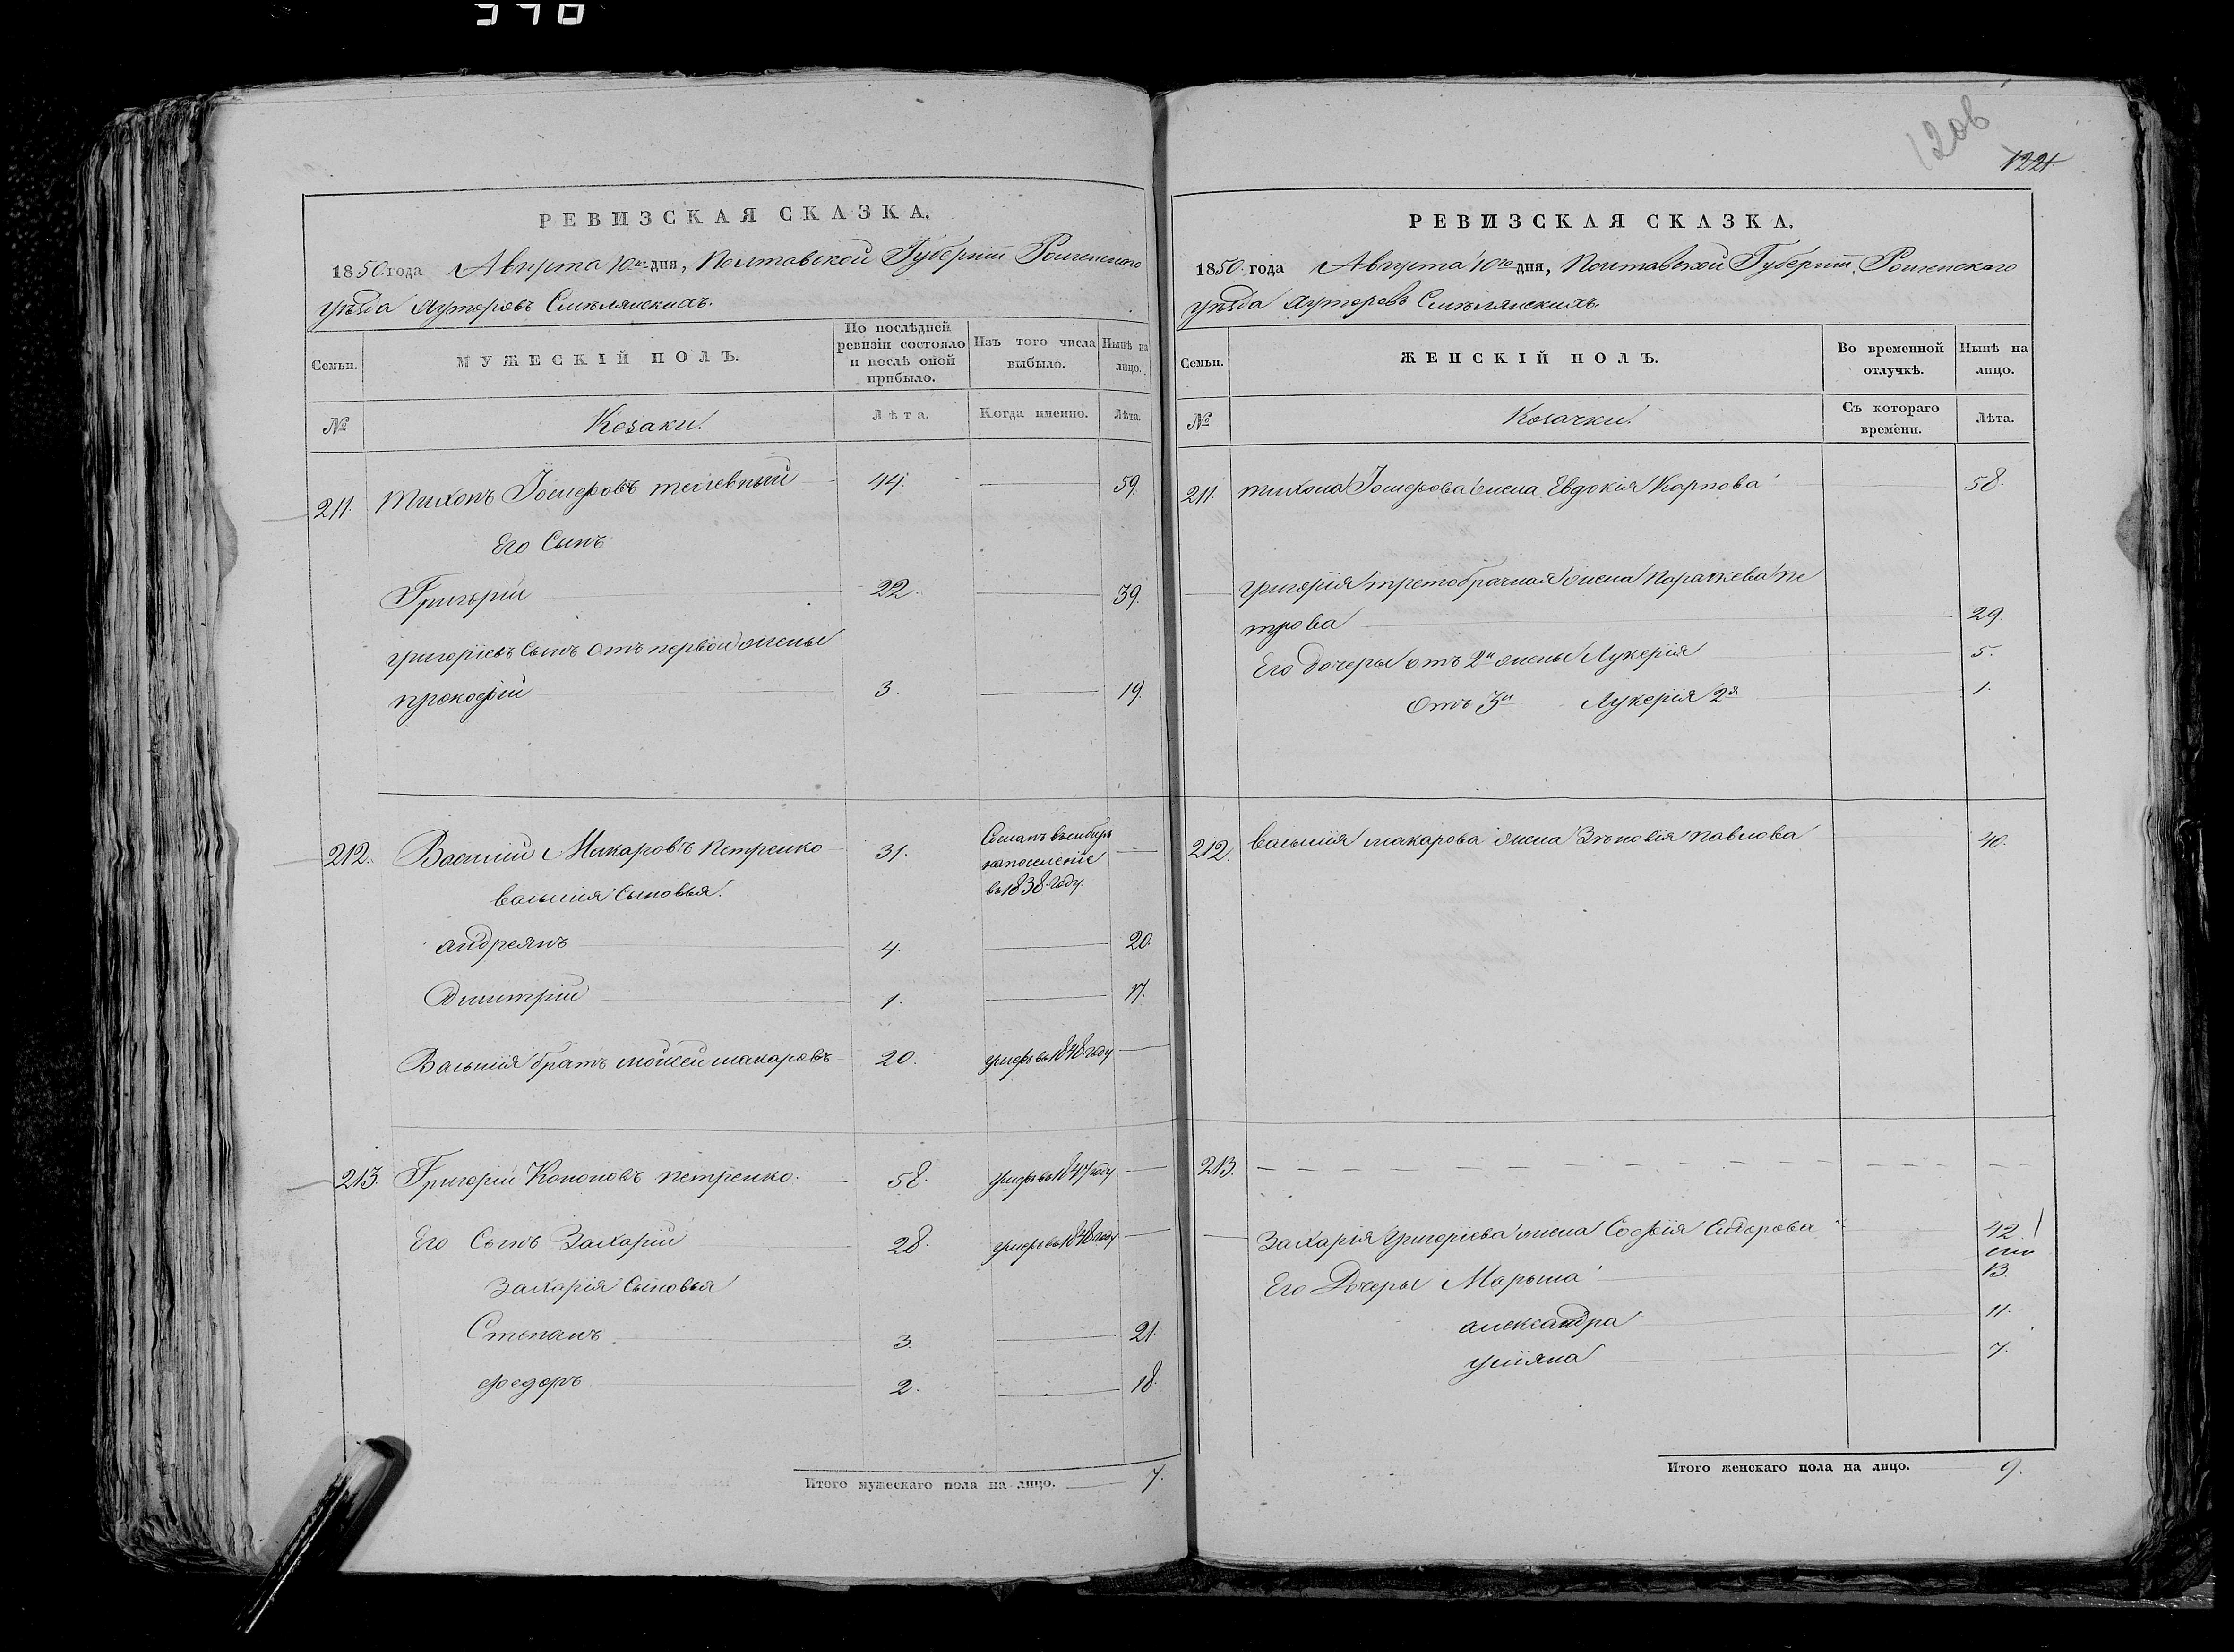 370
РЕВИЗСКАЯ СКАЗКА.
1850. года Августа 10го дня, Полтавской Губерніи Роменского
уѣзда Хуторовъ Смѣлянскихъ.
Семьи.
МУЖЕСКІЙ ПОЛЪ.
По послѣдней ревизіи состояло и послѣ оной прибыло.
Изъ того числа выбыло.
Нынѣ на лицо.
№
Козаки.
Лѣта.
Когда именно.
Лѣта.
211. Тихонъ 44. 59.
Его Сынъ
Григорій 22. 39.
Григоріевъ Сынъ отъ первой жены
Прокофій 3. 19.
212. Василий Макаровъ Петренко 31. Сосланъ въ сибирь
на поселеніе
въ 1838. году.
Василія Сыновья.
Андреянъ 4. 20.
Димитрій 1. 17.
Василія братъ Моисей Макаровъ 20. умеръ въ 1848 году
213. Григорій Кононовъ Петренко. 58. умеръ въ 1847 году
Его Сынъ Захарій 28. умеръ въ 1848 году
Захарія Сыновья
Степанъ 3. 21.
Федоръ 2. 18.
Итого мужескаго пола на лицо. 7.
120в
1221.
РЕВИЗСКАЯ СКАЗКА.
1850. года Августа 10го дня, Полтавской Губерніи, Роменскаго
уѣзда Хуторовъ Смѣлянскихъ.
Семьи.
ЖЕНСКІЙ ПОЛЪ.
Во временной отлучкѣ.
Нынѣ на лицо.
№
Козачки.
Съ котораго времени.
Лѣта.
211. Тихона жена Евдокія Карпова 58.
Григорія третобрачная жена Параскева Пе
трова 29.
Его дочеры отъ 2й жены Лукерія 5.
Отъ 3й Лукерія 2я 1.
212. Василія Макарова жена Зѣновія Павлова 40.
213.
Захарія Григоріева жена Софія Сидорова 42.
Его Дочеры Марьша 13.
Александра 11.
Уліяна 7.
Итого женскаго пола на лицо. 9.